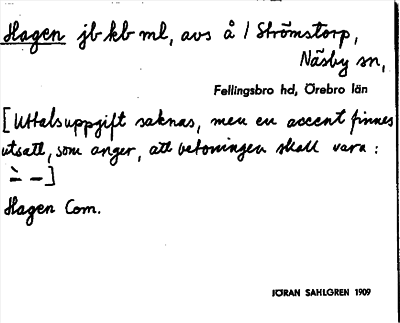 Hagen jb-kb-ml, avs å / Strömstorp,
Näsby sn,
Fellingsbro hd, Örebro län
[Uttalsuppgift saknas, men en accent finnes
utsatt, som anger, att betoningen skall vara:
–́ –]
Hagen Com.
JÖRAN SAHLGREN 1909